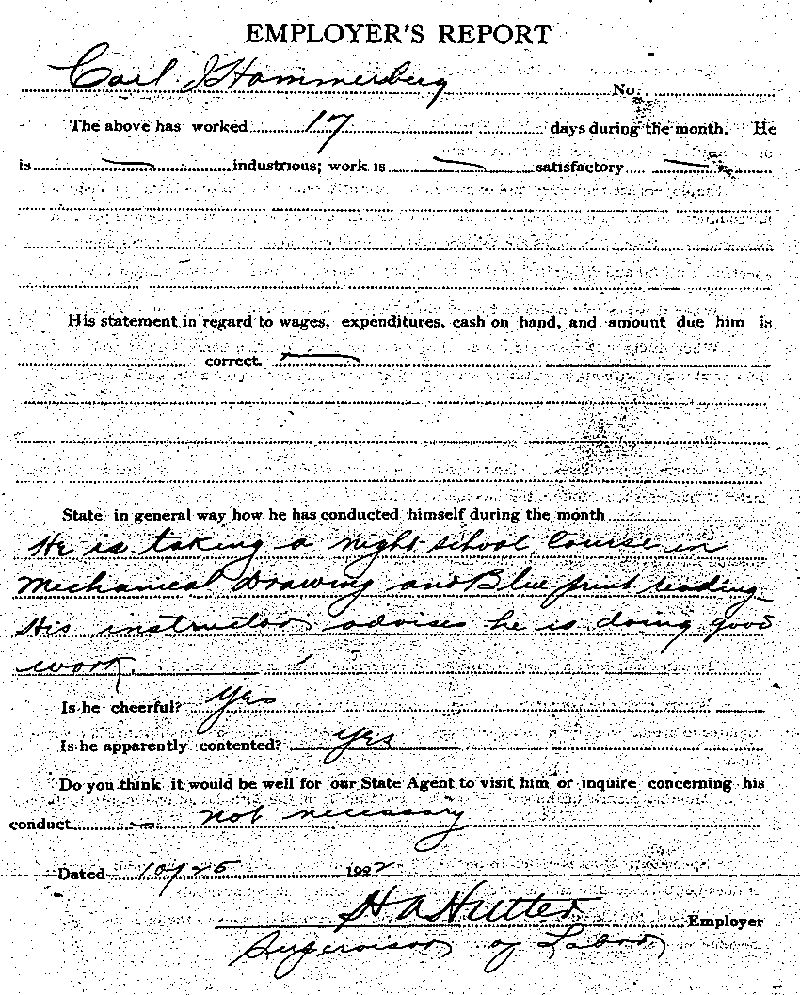 EMPLOYER'S REPORT
Carl J Hammerberg No.
The above has worked 17 days during the month. He
is industrious; work is satisfactory
His statement in regard to wages, expenditures, cash on hand, and amount due him is
correct.
State in general way how he has conducted himself during the month
He is taking a night school course in
Mechanical Drawing and Blue print reading
His instructor advises he is doing good
work.
Is he cheerful? yes
Is he apparently contented? yes
Do you think it would be well for our State Agent to visit him or inquire concerning his
conduct not necessary
Dated 10/25 1922
H A Hutter Employer
Supervisor of Labor